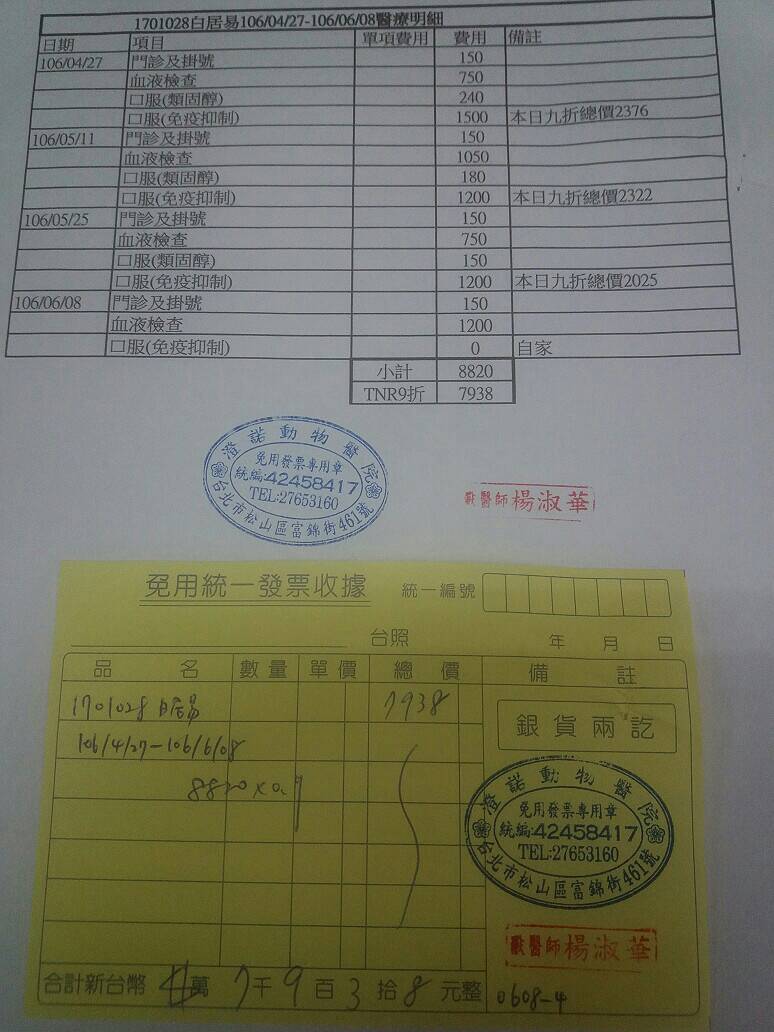 1701028白居易106/04/27-106/06/08醫療明細
日期 項目 單項費用 費用 備註
106/04/27 門診及掛號 150
血液檢查 750
口服(類固醇) 240
口服(免疫抑制) 1500 本日九折總價2376
106/05/11 門診及掛號 150
血液檢查 1050
口服(類固醇) 180
口服(免疫抑制) 1200 本日九折總價2322
106/05/25 門診及掛號 150
血液檢查 750
口服(類固醇) 150
口服(免疫抑制) 1200 本日九折總價2025
106/06/08 門診及掛號 150
血液檢查 1200
口服(免疫抑制) 0 自家
小計 8820
TNR9折 7938
澄諾動物醫院
免用發票專用章
統編:42458417
TEL:27653160
台北市松山區富錦街461號
獸醫師楊淑華
免用統一發票收據 統一編號
台照 年 月 日
品名 數量 單價 總價 備註
1701028 白居易 7938
銀貨兩訖
106/4/27-106/6/08
8820x0.9
澄諾動物醫院
免用發票專用章
統編:42458417
TEL:27653160
台北市松山區富錦街461號
獸醫師楊淑華
合計新台幣 萬 7千9百3拾8元整 0608-4